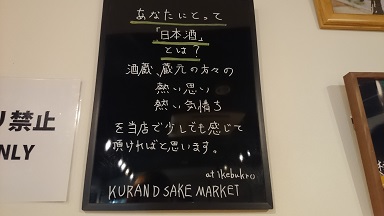 あなたにとって
「日本酒」
とは?
酒蔵、蔵元の方々の
熱い思い
熱い気持ち
を当店で少しでも感じて
頂ければと思います。
at ikebukro
KURAND SAKE MARKET
禁止
ONLY